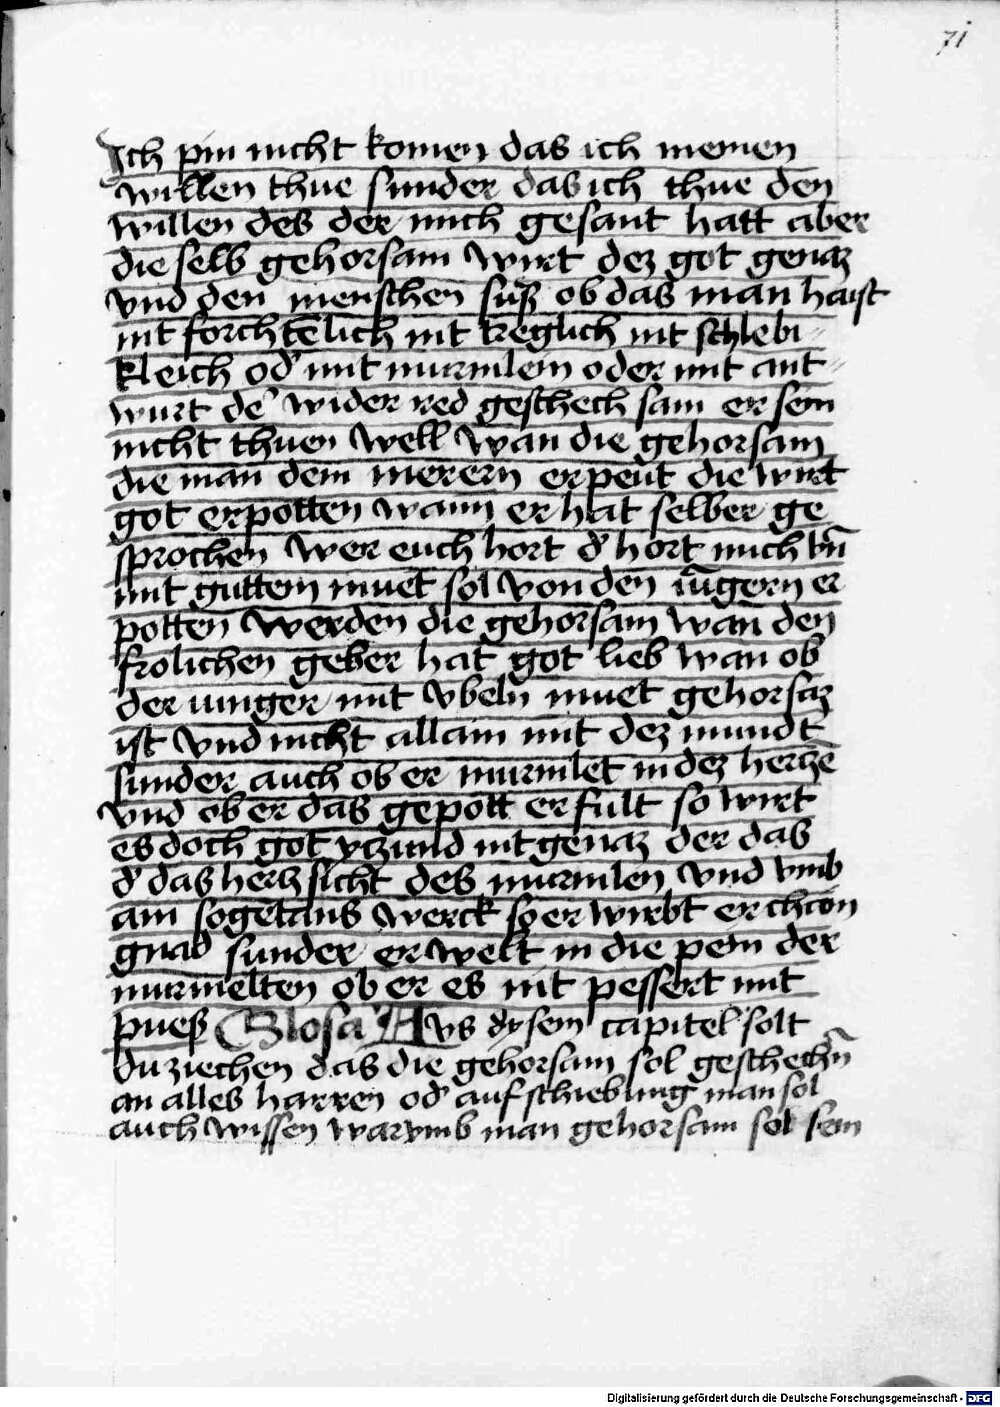 71
Ich pin nicht komen das ich meinen
willen thue sunder das ich thue den
willen des der mich gesant hatt aber
die selb gehorsam wirt dez got genaz
vnd den menschen suß ob das man haist
nit forchtēlich nit treglich nit schlebi⸗
kleich od' mit murmlein oder mit ant⸗
wurt de' wider red geschech sam er sein
nicht thuen well wan die gehorsam
die man dem merern erpeut die wirt
got erpotten wann er hat selber ge
sprochen wer euch hort d' hort mich vn̄
mit guttem muet sol von den iūgern er
potten werden die gehorsam wan̄ den
frolichen geber hat got lieb wan ob
der iunger mit vbeln muet gehorsaz
ist vnd nicht allain mit dez mundt
sunder auch ob er murmlet in dez hertzē
vnd ob er das gepott erfult so wirt
es doch got yczund nit genaz der das
d' das hertz sicht des murmlen vnd vmb
ain sogetans werck so er wirbt er chain
gnad sunder er velt in die pein der
murmelten ob er es nit pessert mit
pueß Glosa Aus dysem capitel solt
du ziechen das die gehorsam sol geschechn̄
an alles harren od' aufschiebung man sol
auch wissen warvmb man gehorsam sol sein
Digitalisierung gefördert durch die Deutsche Forschungsgemeinschaft - DFG